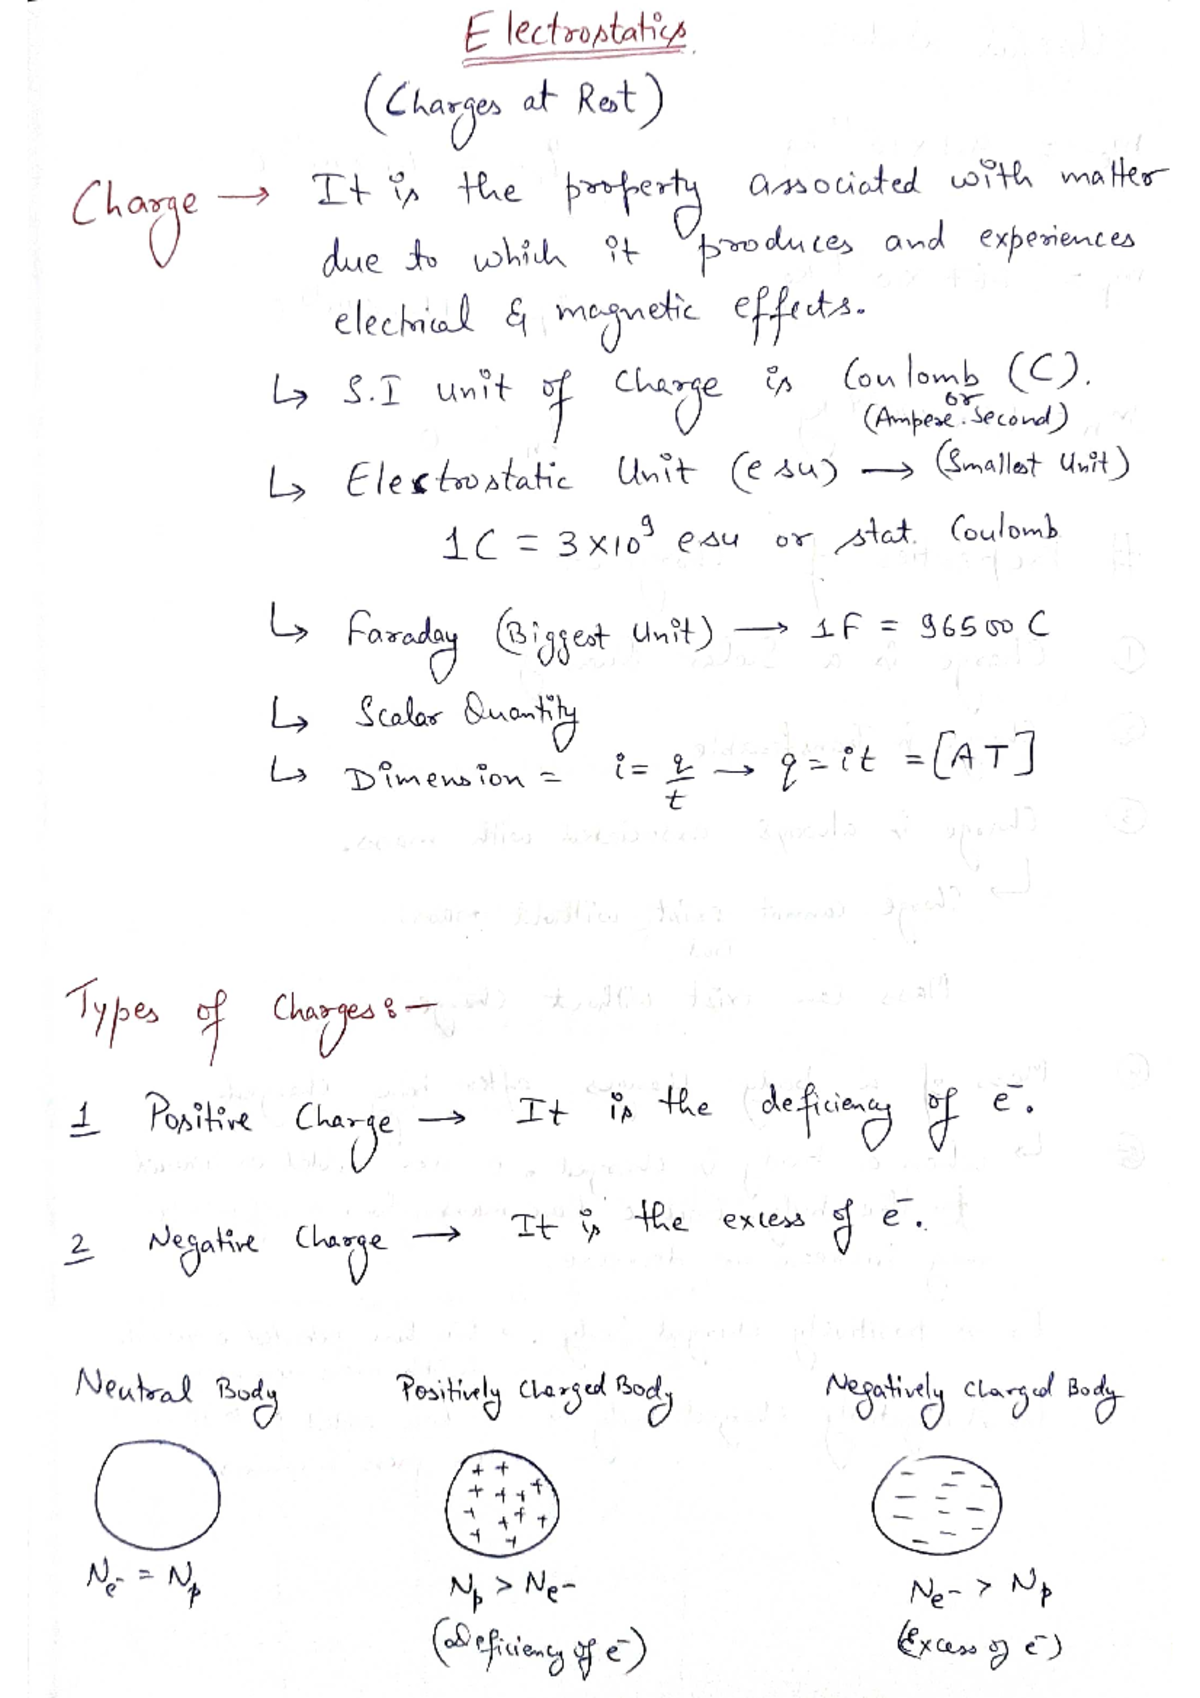 Electrostatics
(Charges at Rest)
Charge → It is the property associated with matter
due to which it produces and experiences
electrical & magnetic effects.
↳ S.I unit of Charge is Coulomb (C).
or
(Ampere.Second)
↳ Electrostatic Unit (esu) → (Smallest Unit)
1C = 3×10⁹ esu or stat. Coulomb
↳ Faraday (Biggest Unit) → 1F = 96500 C
↳ Scalar Quantity
↳ Dimension = i = q/t → q = it = [AT]
Types of Charges:-
1 Positive Charge → It is the deficiency of e⁻.
2 Negative Charge → It is the excess of e⁻.
Neutral Body Positively Charged Body Negatively Charged Body
+ +
+ + + +
+ + + +
+ +
Ne⁻ = Np Np > Ne- Ne- > Np
(Deficiency of e⁻) (Excess of e⁻)